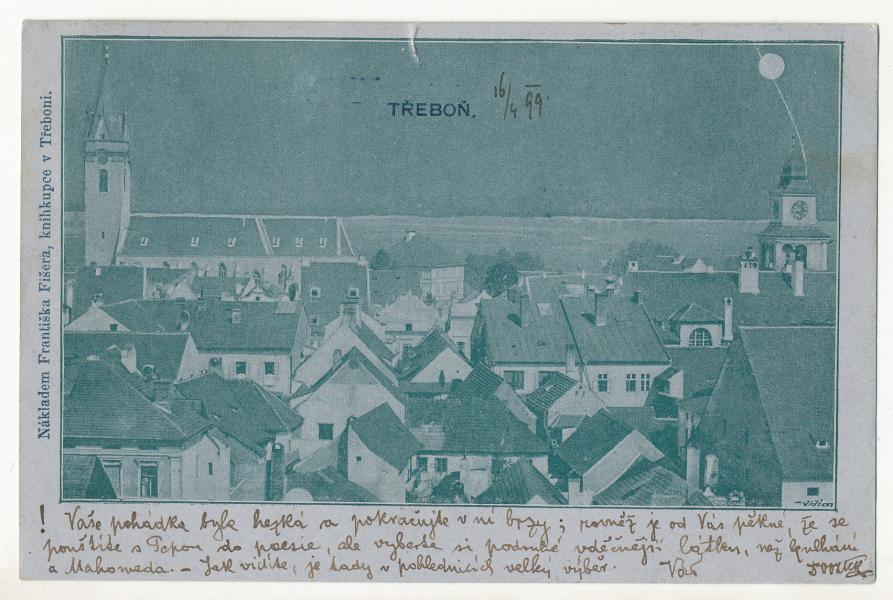 TŘEBOŇ.
16/4 99.
Nákladem Františka Fišera, knihkupce v Třeboni.
! Vaše pohádka byla hezká a pokračujte v ní brzy; rovněž je od Vás pěkné, že se
pouštíte s Pepou do poesie, ale vyberte si podruhé vděčnější látku, než
a Mahomeda. – Jak vidíte, je tady v pohlednicích velký výběr. Váš